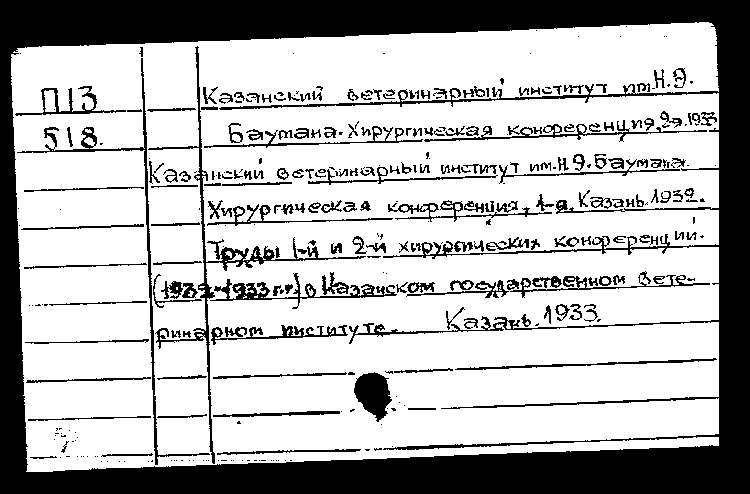 П13 Казанский ветеринарный институт им. Н.Э.
518. Баумана. Хирургическая конференция, 2я. 1933
Казанский ветеринарный институт им. Н.Э. Баумана.
Хирургическая конференция, 1-я. Казань 1932.
Труды 1-й и 2-й хирургических конференций.
(1932-1933 г.г.) в Казанском государственном вете-
ринарном институте. Казань. 1933.